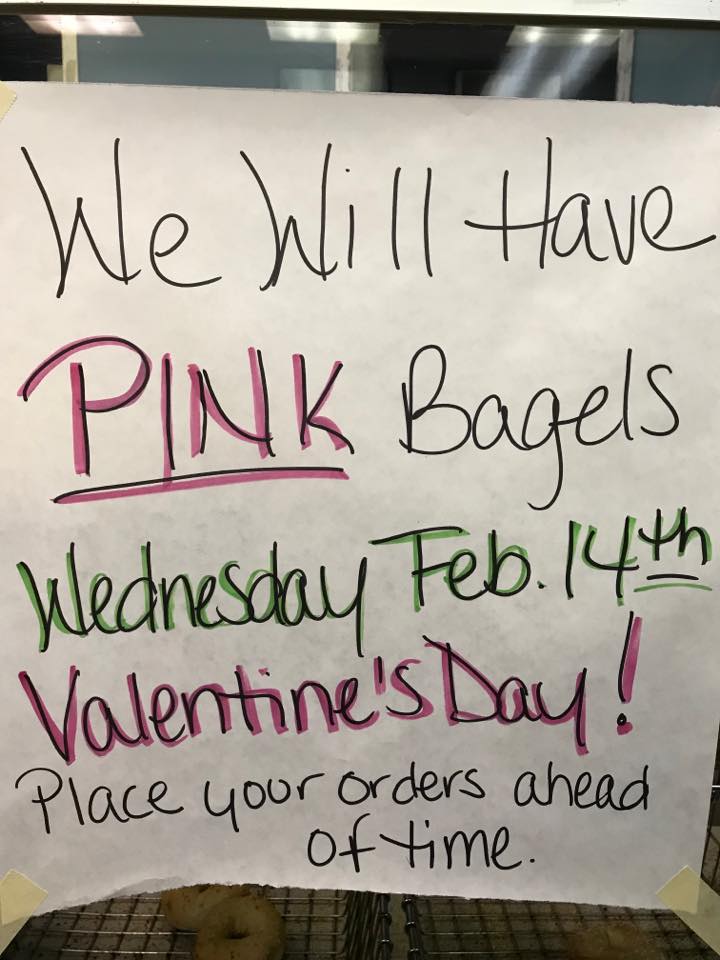 We Will Have
PINK Bagels
Wednesday Feb. 14th
Valentine's Day!
Place your orders ahead
of time.